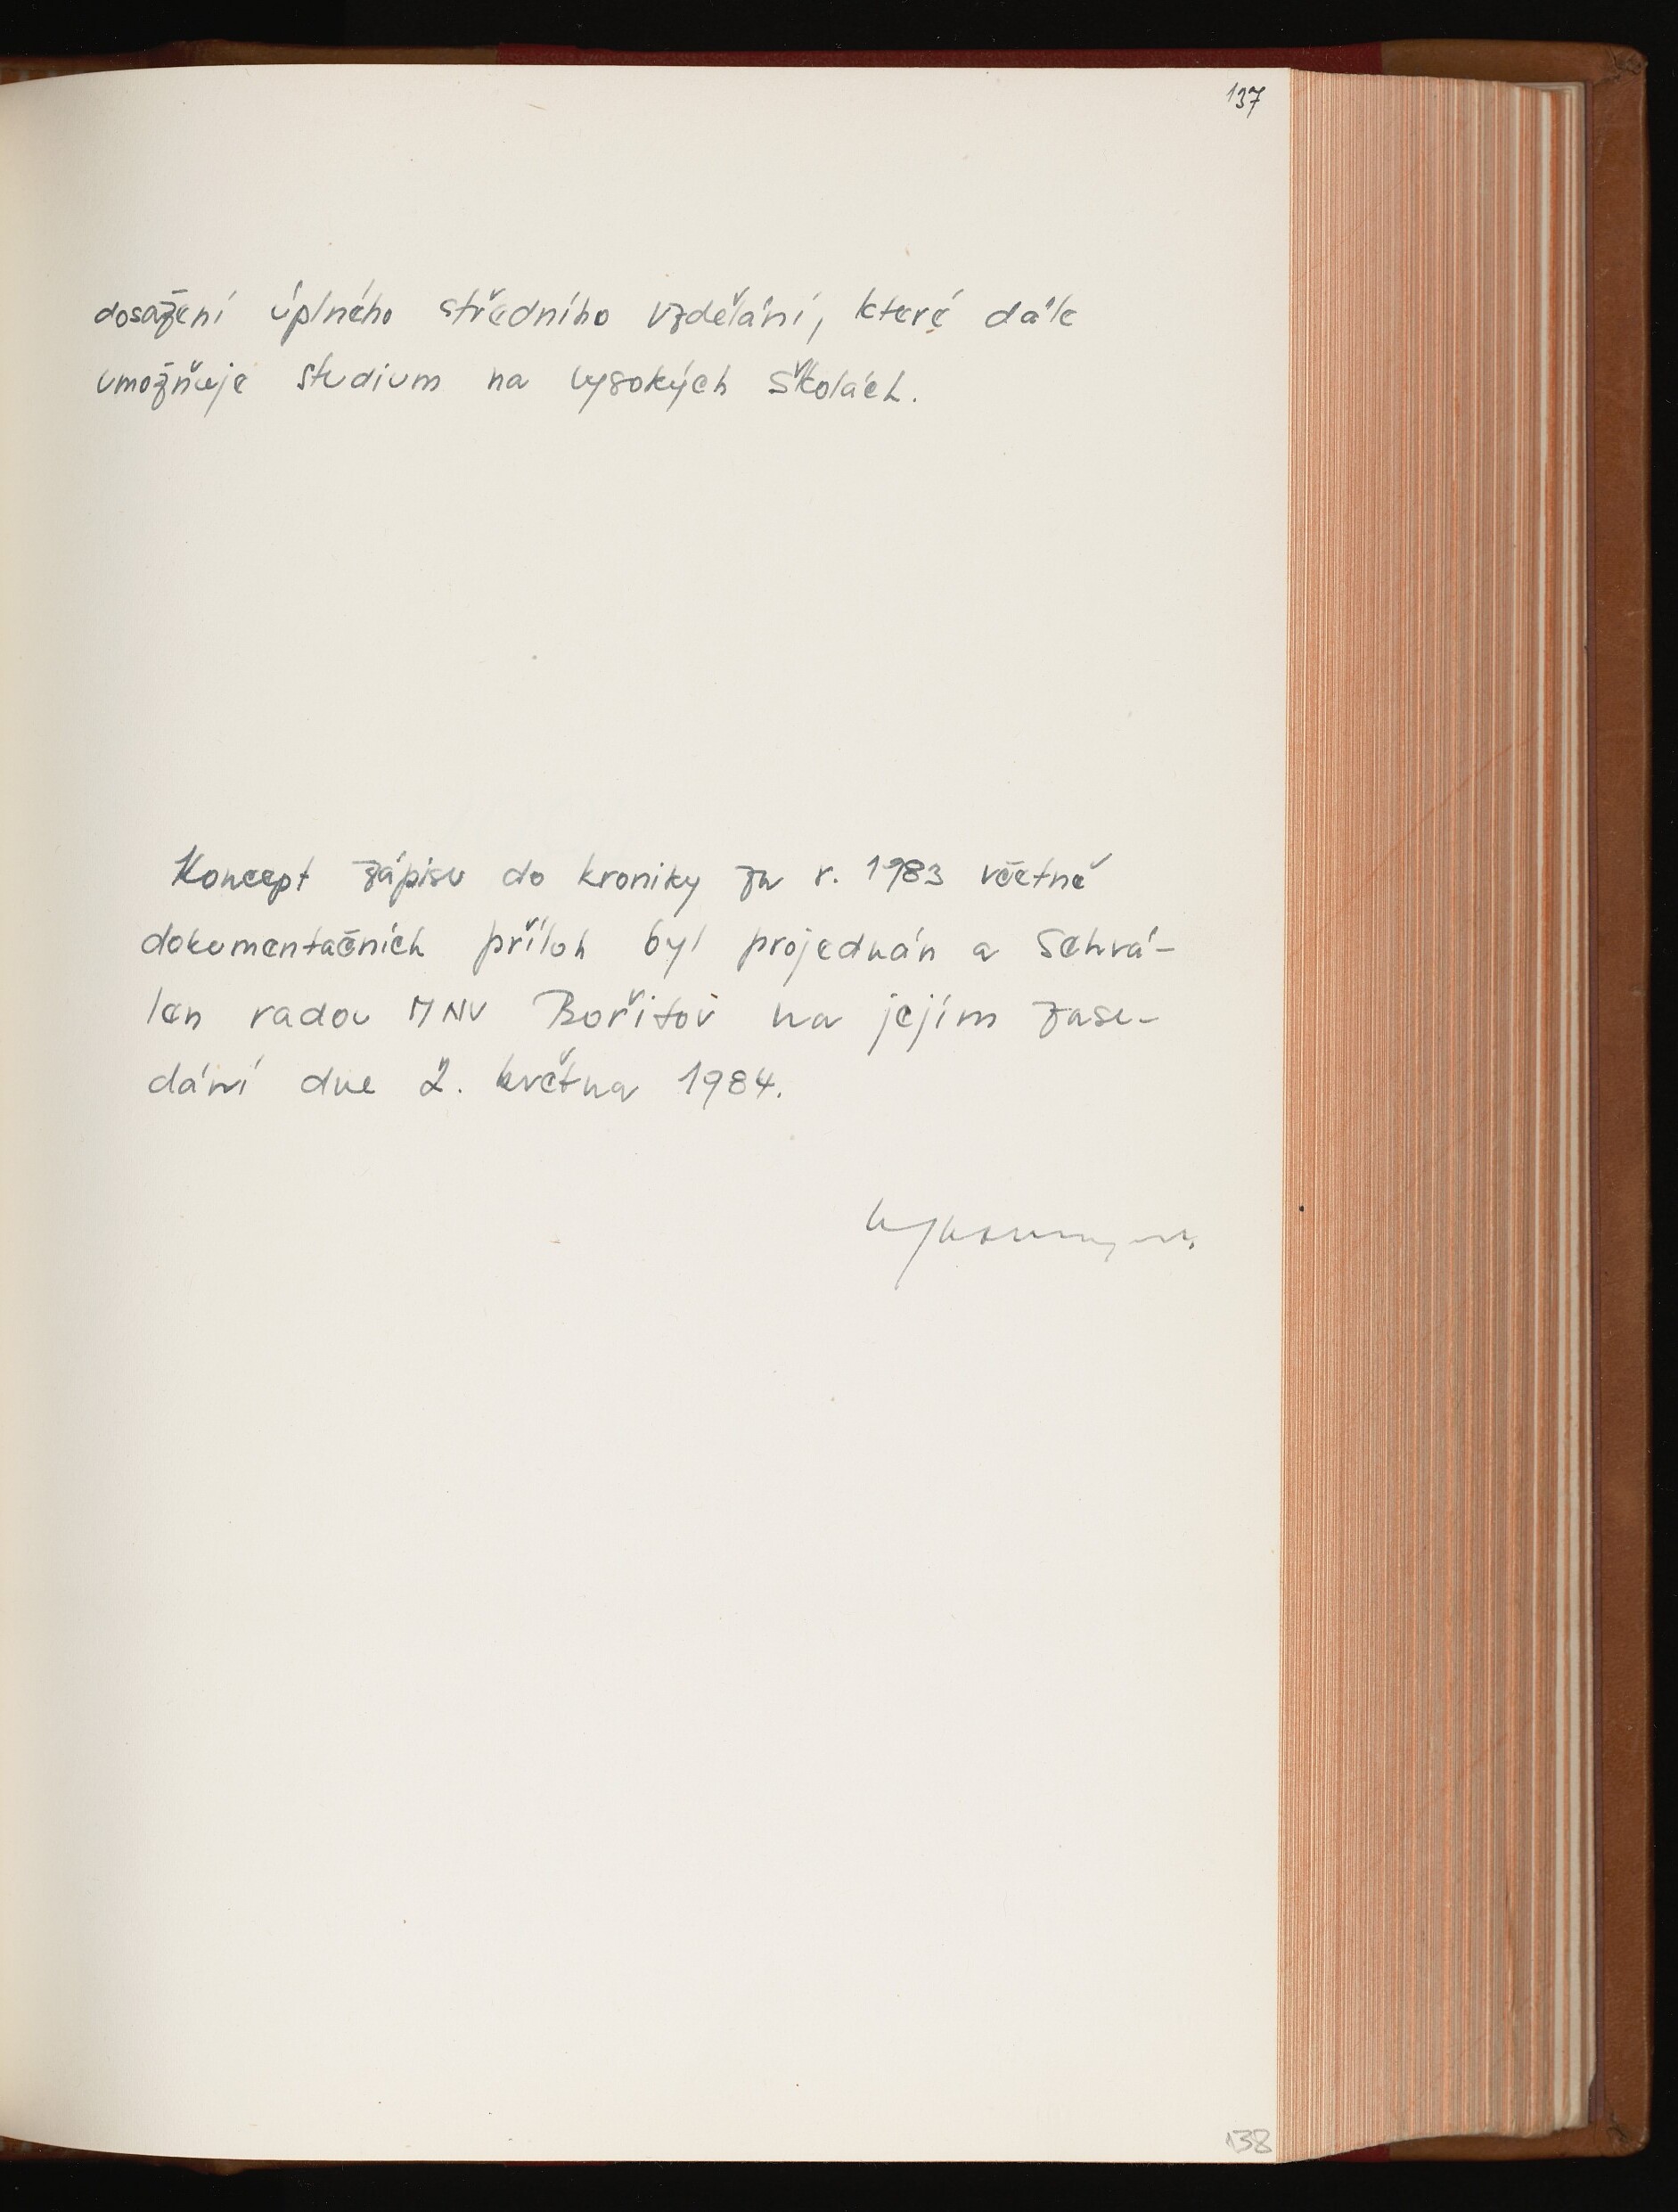 137
dosažení úplného středního vzdělání, které dále
umožňuje studium na vysokých školách.
Koncept zápisu do kroniky za r. 1983 včetně
dokumentačních příloh byl projednán a schvá-
len radou MNV Bořitov na jejím zase-
dání dne 2. května 1984.
138